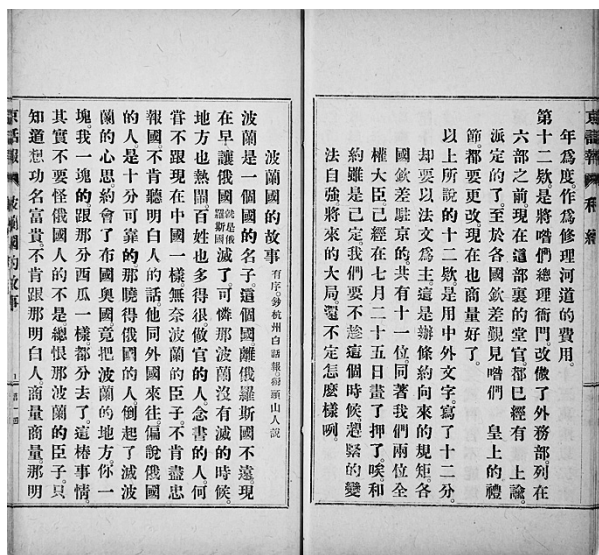 京話報 和約
年爲度作爲修理河道的費用。
第十二欵。是將喒們總理衙門。改做了外務部。列在
六部之前。現在這部裏的堂官。都已經有 上諭。
派定的了。至於各國欽差覲見喒們 皇上的禮
節。都要更改。現在也商量好了。
以上所說的十二欵。是用中外文字。寫了十二分。
却要以法文爲主。這是辦條約向來的規矩。各
國欽差駐京的。共有十一位。同著我們兩位全
權大臣。已經在七月二十五日畫了押了。唉。和
約雖是已定。我們要不趁這個時候。趕緊的變
法自强。將來的大局。還不定怎麼樣咧。
波蘭國的故事 有序。鈔杭州白話報。獨頭山人說
波蘭是一個國的名子。這個國。離俄羅斯國不遠。現
在早讓俄國就是俄羅斯國滅了。可憐那波蘭沒有滅的時候。
地方也熱鬧。百姓也多得很。做官的人。念書的人。何
嘗不跟現在中國一樣。無奈波蘭的臣子。不肯盡忠
報國。不肯聽明白人的話。他同外國來往。偏說俄國
的人。是十分可靠的。那曉得俄國的人。倒起了滅波
蘭的心思。約會了布國奧國。竟把波蘭的地方。你一
塊。我一塊的。跟那分西瓜一樣。都分去了。這樁事情。
其實不要怪俄國人的不是。總恨那波蘭的臣子。只
知道想功名富貴。不肯跟那明白人。商量商量。那明
京話報 波蘭國的故事 一 第一回